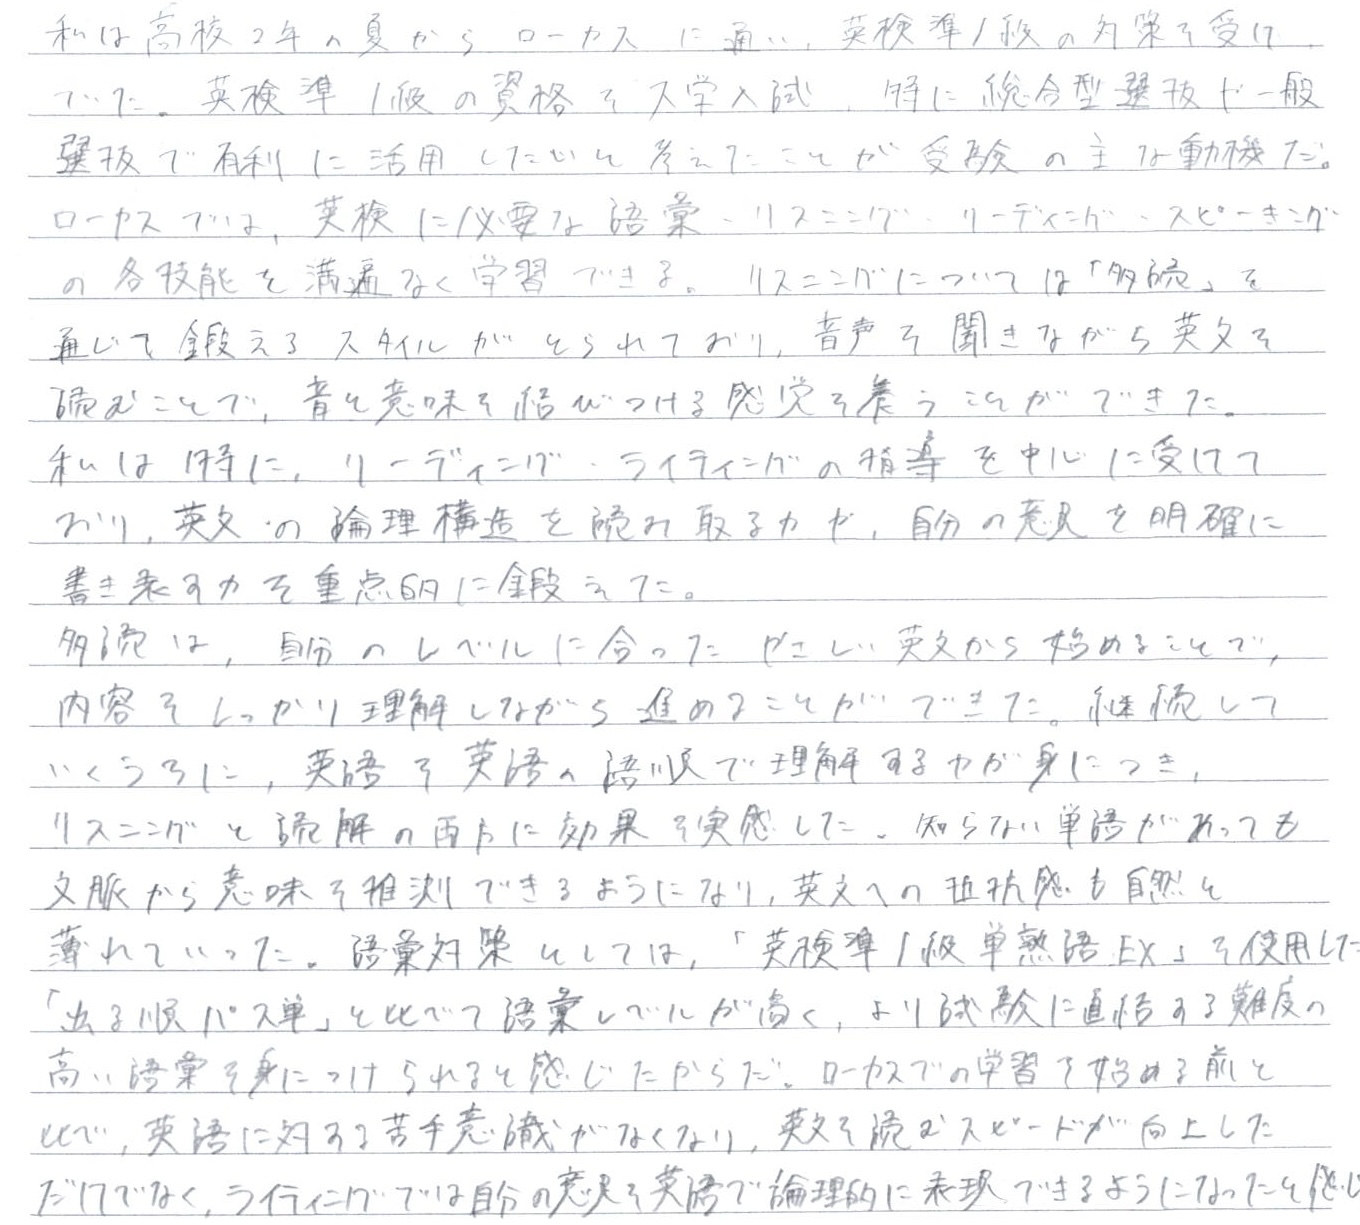 私は高校2年の夏からローカスに通い、英検準1級の対策を受け
ていた。英検準1級の資格を大学入試、特に総合型選抜や一般
選抜で有利に活用したいと考えたことが受験の主な動機だ。
ローカスでは、英検に必要な語彙・リスニング・リーディング・スピーキング
の各技能を満遍なく学習できる。リスニングについては「多読」を
通じて鍛えるスタイルがとられており、音声を聞きながら英文を
読むことで、音と意味を結びつける感覚を養うことができた。
私は特に、リーディング・ライティングの指導を中心に受けて
おり、英文の論理構造を読み取る力や、自分の意見を明確に
書き表す力を重点的に鍛えてた。
多読は、自分のレベルに合ったやさしい英文から始めることで、
内容をしっかり理解しながら進めることができた。継続して
いくうちに、英語を英語の語順で理解する力が身につき、
リスニングと読解の両方に効果を実感した。知らない単語があっても
文脈から意味を推測できるようになり、英文への抵抗感も自然と
薄れていった。語彙対策としては、「英検準1級単熟語EX」を使用した
「出る順パス単」と比べて語彙レベルが高く、より試験に直結する難度の
高い語彙を身につけられると感じたからだ。ローカスでの学習を始める前と
比べ、英語に対する苦手意識がなくなり、英文を読むスピードが向上した
だけでなく、ライティングでは自分の意見を英語で論理的に表現できるようになったと感じ